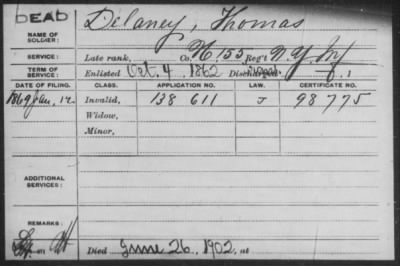 DEAD
NAME OF SOLDIER: Delaney, Thomas
SERVICE: Late rank, Co. H, 155 Reg't N.Y. Inf
TERM OF SERVICE: Enlisted Oct. 4, 1862 Discharged , 1
DATE OF FILING. CLASS. APPLICATION NO. LAW. CERTIFICATE NO.
1869 Jan, 12 Invalid, 138 611 J 98 775
Widow,
Minor,
ADDITIONAL SERVICES:
REMARKS:
Died June 26, 1902, at